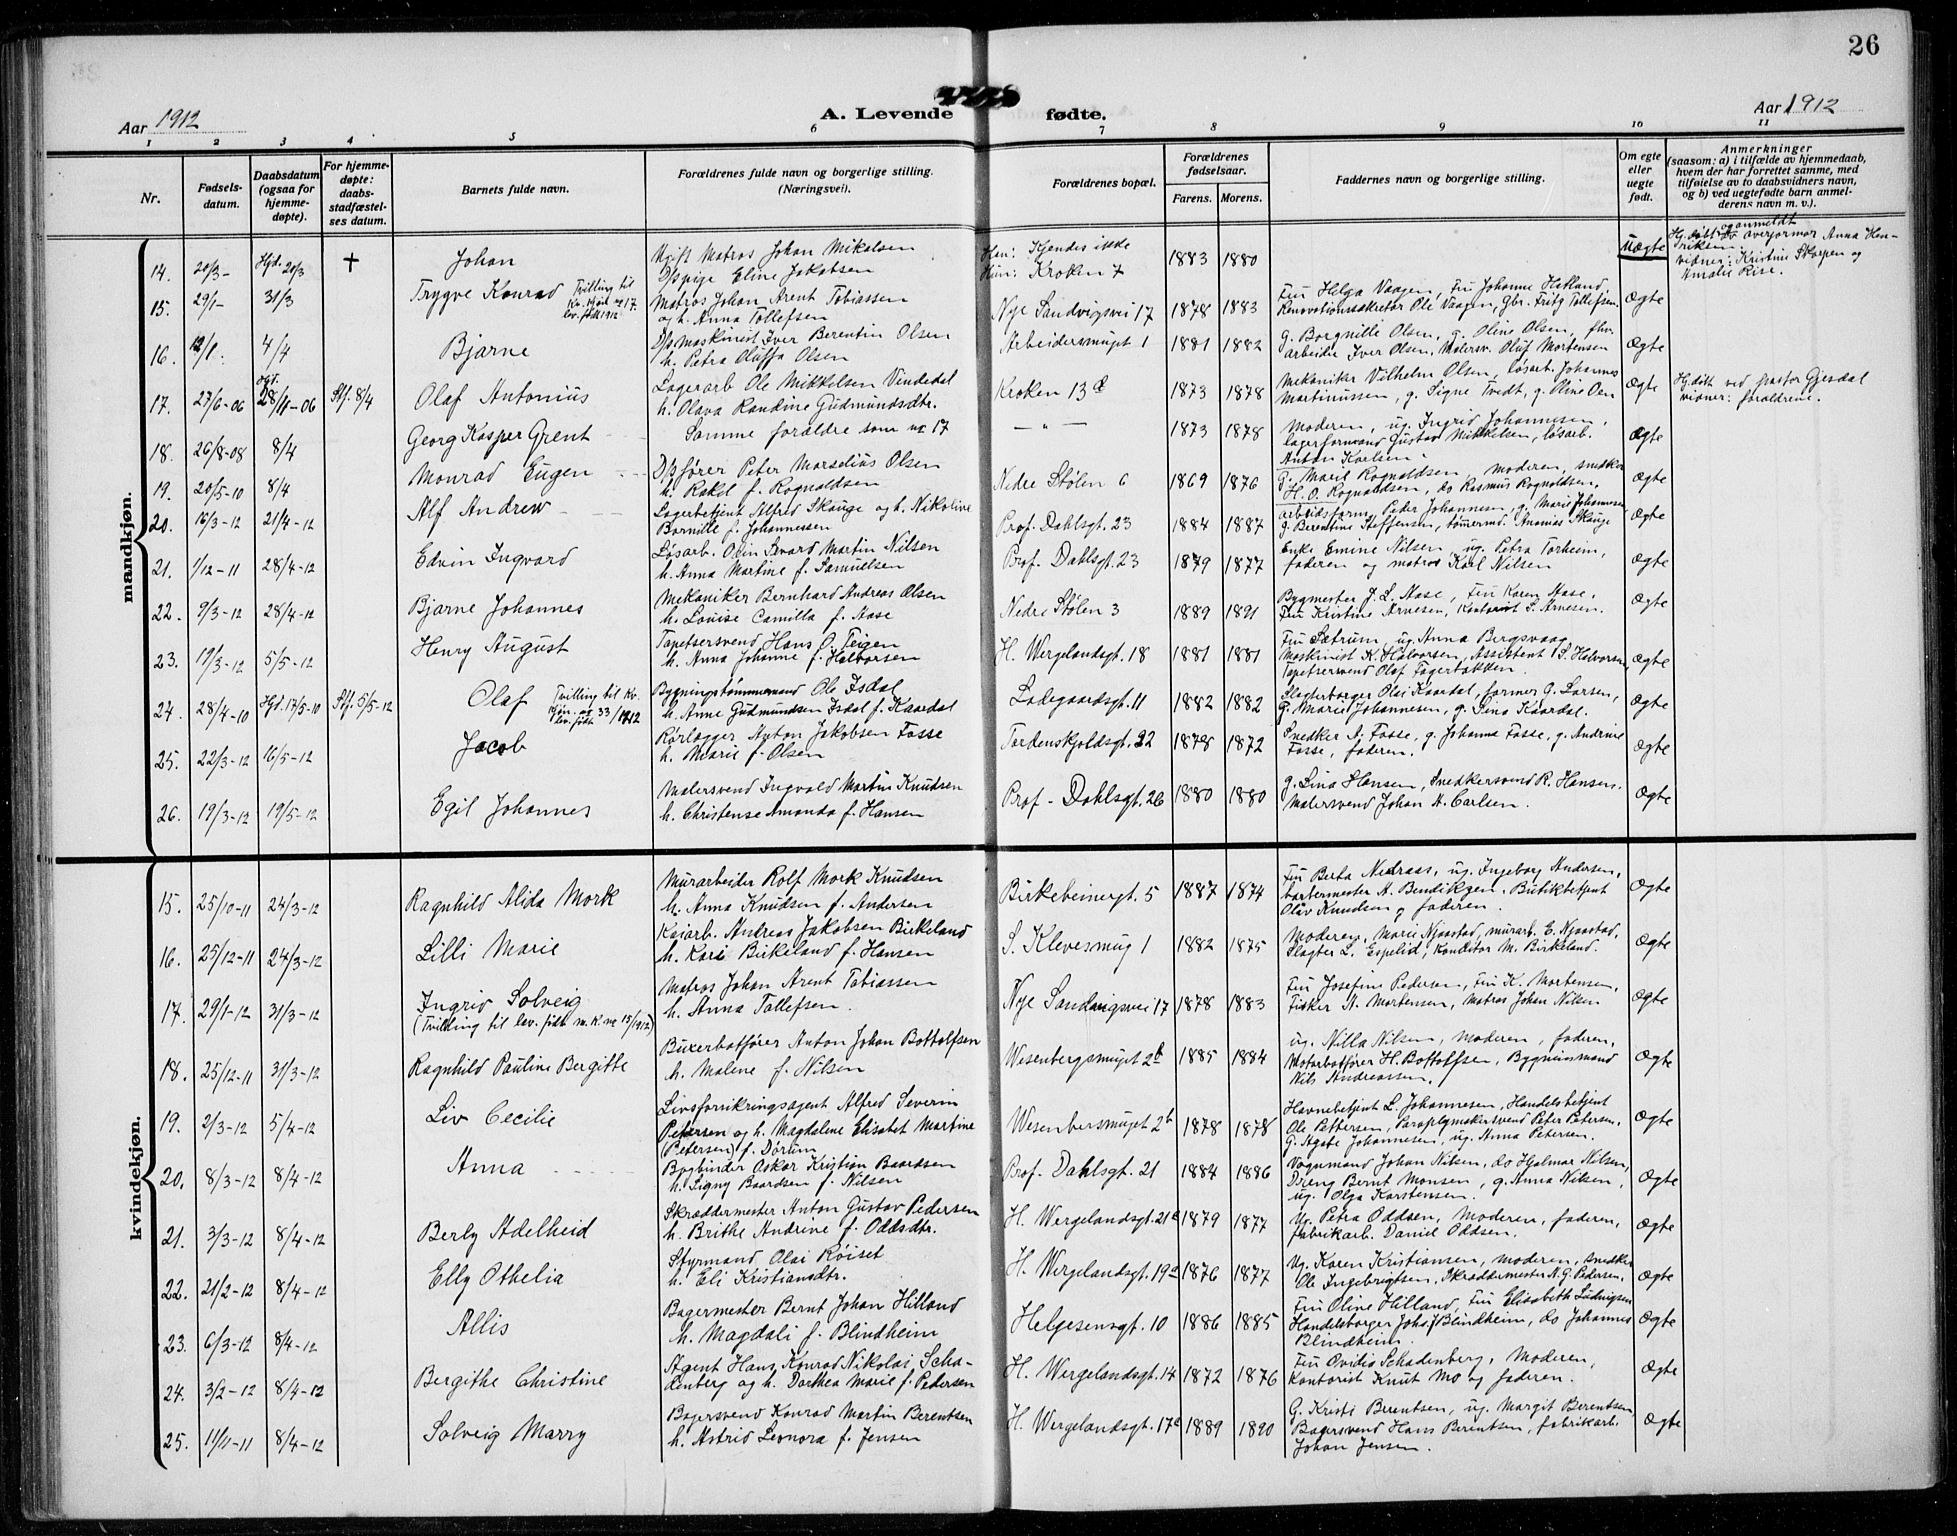 26
Aar 1912
A. Levende fødte.
Aar 1912
1 2 3 4 5 6 7 8 9 10 11
Nr.
Fødsels-
datum.
Daabsdatum
(ogsaa for
hjemme-
døpte).
For hjemme-
døpte:
daabs-
stadfæstel-
ses datum.
Barnets fulde navn.
Forældrenes fulde navn og borgerlige stilling.
(Næringsvei).
Forældrenes bopæl.
Forældrenes
fødselsaar.
Farens. Morens.
Faddernes navn og borgerlige stilling.
Om egte
eller
uegte
født.
Anmerkninger
(saasom: a) i tilfælde av hjemmedaab,
hvem der har forrettet samme, med
tilføielse av to daabsvidners navn,
og b) ved uegtefødte barn anmel-
derens navn m. v.).
mandkjøn.
14. 20/3- Hjd. 20/3 † Johan
Ugift Matros Johan Mikalsen
D/s pige Eline Jakobsen
Han: Kjendes ikke
Hun: Kroken 7
1883 1880 Uægte
Hj. døbt og anmeldt
av overjormor Anna Hen-
riksen
vidner: Kristine Skorpen og
Amalie Rise.
15. 29/1- 31/3 Trygve Konrad Tvilling til
Kv. kjøn no 17.
lev. født 1912
Matros Johan Arent Tobiassen
og h. Anna Tollefsen
Nye Sandvigsvei 17 1878 1883
Fru Helga Vaagen, Fru Johanne Hatland,
Renovationssekretær Ole Vaagen, Gbr. Fritz Tollefsen.
Ægte
16. 4/4 Bjarne
D/s maskinist Iver Berentin Olsen
h. Petra Oluffa Olsen
Arbeidersmuget 1 1881 1882
G. Borgnille Olsen, g. Oline Olsen, fhv.
arbeider Iver Olsen, Malersv. Oluf Mortensen
Ægte
17. 27/6-06 Hjd. 28/11-06 Stf. 8/4 Olaf Antonius
Lagerarb Ole Mikkelsen Vindedal
h. Olava Randine Gudmundsdtr.
Kroken 13 1873 1878
Mekaniker Vilhelm Olsen, løsarb. Johannes
Martinussen, g. Signe Tvedt, g. Oline Oen
Ægte
Hj. døbt ved pastor Gjesdal
vidner: forældrene.
18. 26/8-08 8/4 Georg Kasper Grent
Samme forældre som no 17
— " — 1873 1878
Moderen, ug. Ingrid Johannesen,
lagerformand Gustav Mikkelsen, løsarb.
Anton Karlsen.
Ægte
19. 20/5-10 8/4 Monrad Eugen
D/s fører Peter Marselius Olsen
h. Rakel f. Rognaldsen
Nedre Stølen 6 1869 1876
G. Marie Rognaldsen, moderen, snedker
H. O. Rognaldsen, do Rasmus Rognaldsen,
Ægte
20. 16/3-12 21/4-12 Alf Andrew
Lagerbetjent Alfred Skauge og h. Nikoline
Bornille f. Johannessen
Prof. Dahlsgt. 23 1884 1887
arbeidsform. Peder Johannesen, g. Marie Johannesen
g. Berentine Steffensen, tømermd. Ananias Skauge
Ægte
21. 1/12-11 28/4-12 Edvin Ingvard
Løsarb. Olin Sevard Martin Nilsen
h. Anna Martine f. Samuelsen
Prof. Dahlsgt. 23 1879 1877
Enke Emine Nilsen, ug. Petra Torheim,
faderen og matros Karl Nilsen
Ægte
22. 9/3-12 28/4-12 Bjarne Johannes
Mekaniker Bernhard Andreas Olsen
h. Louise Camilla f. Aase
Nedre Stølen 3 1889 1891
Bygmester J. L. Aase, Fru Karen Aase,
Fru Kristine Arnesen, Kontorist S. Arnesen.
Ægte
23. 19/3-12 5/5-12 Henry August
Tapetsersvend Hans O. Teigen
h. Anna Johanne f. Halvorsen
H. Wergelandsgt. 18 1881 1881
Fru Sætrum, ug. Anna Bergsvaag,
Maskinist K. Halvorsen, Assistent S. Halvorsen,
Tapetsersvend Olaf Fagerbakken
Ægte
24. 28/4-10 Hjd. 17/5-10 Stf. 5/5-12 Olaf Tvilling til Kv.
kjøn no 33/1912
lev. født
Bygningstømmermand Ole Isdal
h. Anne Gudmundsen Isdal f. Kaardal
Ladegaardsgt. 11 1882 1882
Slagterborger Olai Kaardal, former G. Larsen,
G. Marie Johannesen, g. Sina Kaardal.
Ægte
25. 22/3-12 16/5-12 Jacob
Rørlægger Anton Jakobsen Fosse
h. Marie f. Olsen
Tordenskjoldsgt. 22 1878 1872
Snedker A. Fosse, g. Johanna Fosse, g. Andrine
Fosse, faderen.
Ægte
26. 19/3-12 19/5-12 Egil Johannes
Malersvend Ingvald Martin Knudsen
h. Christense Amanda f. Hansen
Prof. Dahlsgt. 26 1880 1880
G. Lina Hansen, Snedkersvend R. Hansen.
Malersvend Johan A. Carlsen.
Ægte
kvindekjøn.
15. 25/10-11 24/3-12 Ragnhild Alida Mork
Murarbeider Rolf Mork Knudsen
h. Anna Knudsen f. Andersen
Birkebeinergt. 5 1887 1874
Fru Berta Nedraas, ug. Ingeborg Andersen,
Garvermester A. Bendiksen. Butikbetjent
Olav Knudsen og faderen.
Ægte
16. 25/12-11 24/3-12 Lilli Marie
Kaiarb. Andreas Jakobsen Birkeland
h. Kari Birkeland f. Hansen
S. Klevesmug 1 1882 1875
Moderen, Marie Njaastad, murarb. E. Njaastad,
Slagter L. Espelid, Konditor M. Birkeland.
Ægte
17. 29/1-12 31/3-12 Ingrid Solveig
(Tvilling til lev. født m. k. no 15/1912)
Matros Johan Arent Tobiassen
h. Anna Tollefsen.
Nye Sandvigsvei 17 1878 1883
Fru Josefine Pedersen, Fru K. Mortensen,
Fisker N. Mortensen, Matros Johan Nilsen
Ægte
18. 25/12-11 31/3-12 Ragnhild Pauline Bergitte
Buxerbatfører Anton Johan Bottolfsen
h. Malene f. Nilsen
Wesenbergsmuget 2b 1885 1884
ug. Nilla Nilsen, moderen, faderen,
Motorbatfører H. Bottolfsen, Bygningsmand
Nils Andreassen.
Ægte
19. 2/3-12 5/4-12 Liv Cecilie
Livsforsikringsagent Alfred Severin
Petersen og h. Magdalene Elisabet Martine
(Petersen) f. Dørum
Wesenbersmuget 2b 1878 1878
Havnebetjent L. Johannesen, Handelsbetjent
Ole Pettersen, Paraplymakersvend Peter Petersen,
G. Agate Johannesen, ug. Anna Petersen.
Ægte
20. 8/3-12 8/4-12 Anna
Bogbinder Oskar Kristian Baardsen
h. Signy Baardsen f. Nilsen
Prof. Dahlsgt. 21 1884 1886
Vognmand Johan Nilsen, do Hjalmar Nilsen,
Dreng Bernt Monsen, g. Anna Nilsen,
ug. Olga Karstensen.
Ægte
21. 3/3-12 8/4-12 Berly Adelheid
Skræddermester Anton Gustav Pedersen
h. Brithe Andrine f. Oddsdtr.
H. Wergelandsgt. 21a 1879 1877
Ug. Petra Oddsen, Moderen, faderen,
fabrikarb. Daniel Oddsen.
Ægte
22. 21/2-12 8/4-12 Elly Othelia
Styrmand Olai Røiset
h. Eli Kristiansdtr.
H. Wergelandsgt. 19a 1876 1877
Ug. Karen Kristiansen, moderen, snedker
Ole Ingebrigtsen, Skræddermester A. G. Pedersen,
Ægte
23. 6/3-12 8/4-12 Allis
Bagermester Bernt Johan Hilland
h. Magdali f. Blindheim
Helgesensgt. 10 1886 1885
Fru Oline Hilland, Fru Elisabeth Ludvigsen
Handelsborger Johs. Blindheim, do Johannes
Blindheim.
Ægte
24. 3/2-12 8/4-12 Bergithe Christine
Agent Hans Konrad Nikolai Scha-
denberg og h. Dorthea Marie f. Pedersen
H. Wergelandsgt. 14 1872 1876
Fru Ovidia Schadenberg, Moderen,
Kontorist Knut Mo og faderen.
Ægte
25. 11/11-11 8/4-12 Solveig Marry
Bagersvend Konrad Martin Berentsen
h. Astrid Leonora f. Jensen
H. Wergelandsgt. 17a 1889 1890
G. Kristi Berentsen, ug. Margit Berentsen,
Bagersvend Hans Berentsen, fabrikarb.
Johan Jensen.
Ægte